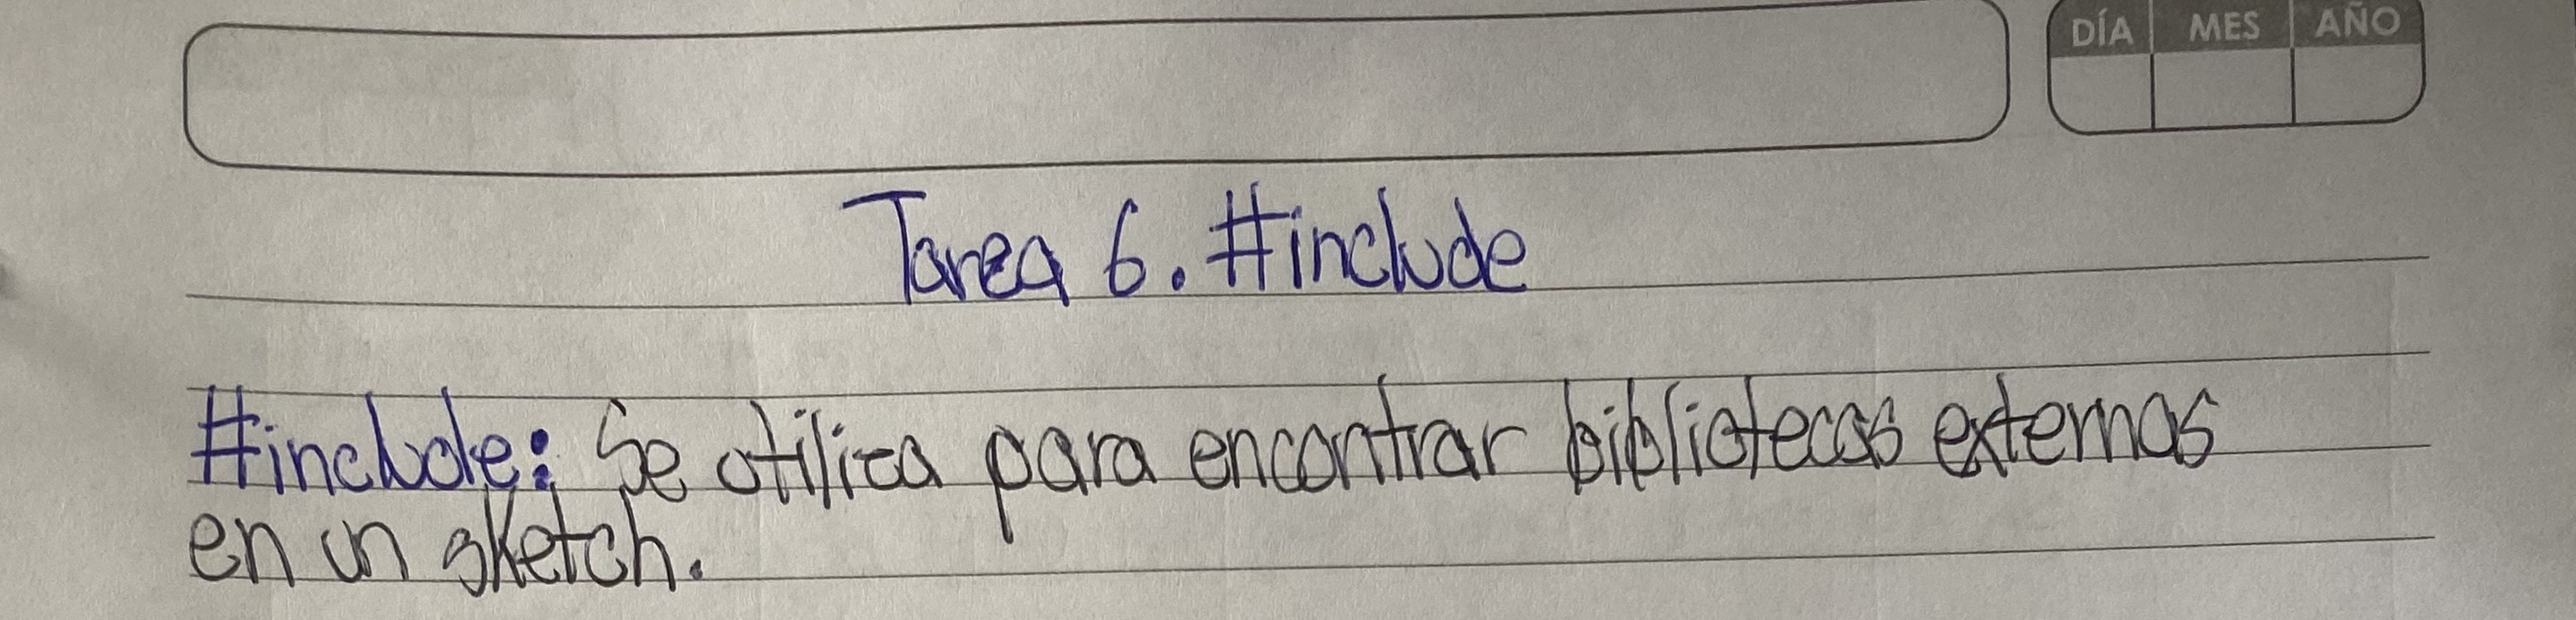 DÍA MES AÑO
Tarea 6. #include
#include: Se utiliza para encontrar bibliotecas externas
en un sketch.